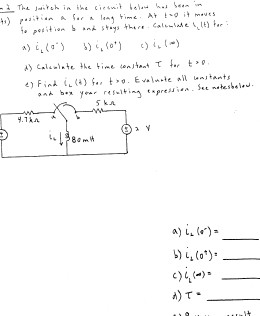 -2 The switch in the circuit below has been in
position a for a long time. At t=0 it moves
to position b and stays there. Calculate i_L(t) for:
a) i_L(0⁻) b) i_L(0⁺) c) i_L(∞)
d) Calculate the time constant τ for t>0.
e) Find i_L(t) for t>0. Evaluate all constants
and box your resulting expression. See notes below.
5 kΩ
4.7kΩ
a b
i_L ↓ 80mH
2 V
a) i_L(0⁻) = ____
b) i_L(0⁺) = ____
c) i_L(∞) = ____
d) τ = ____